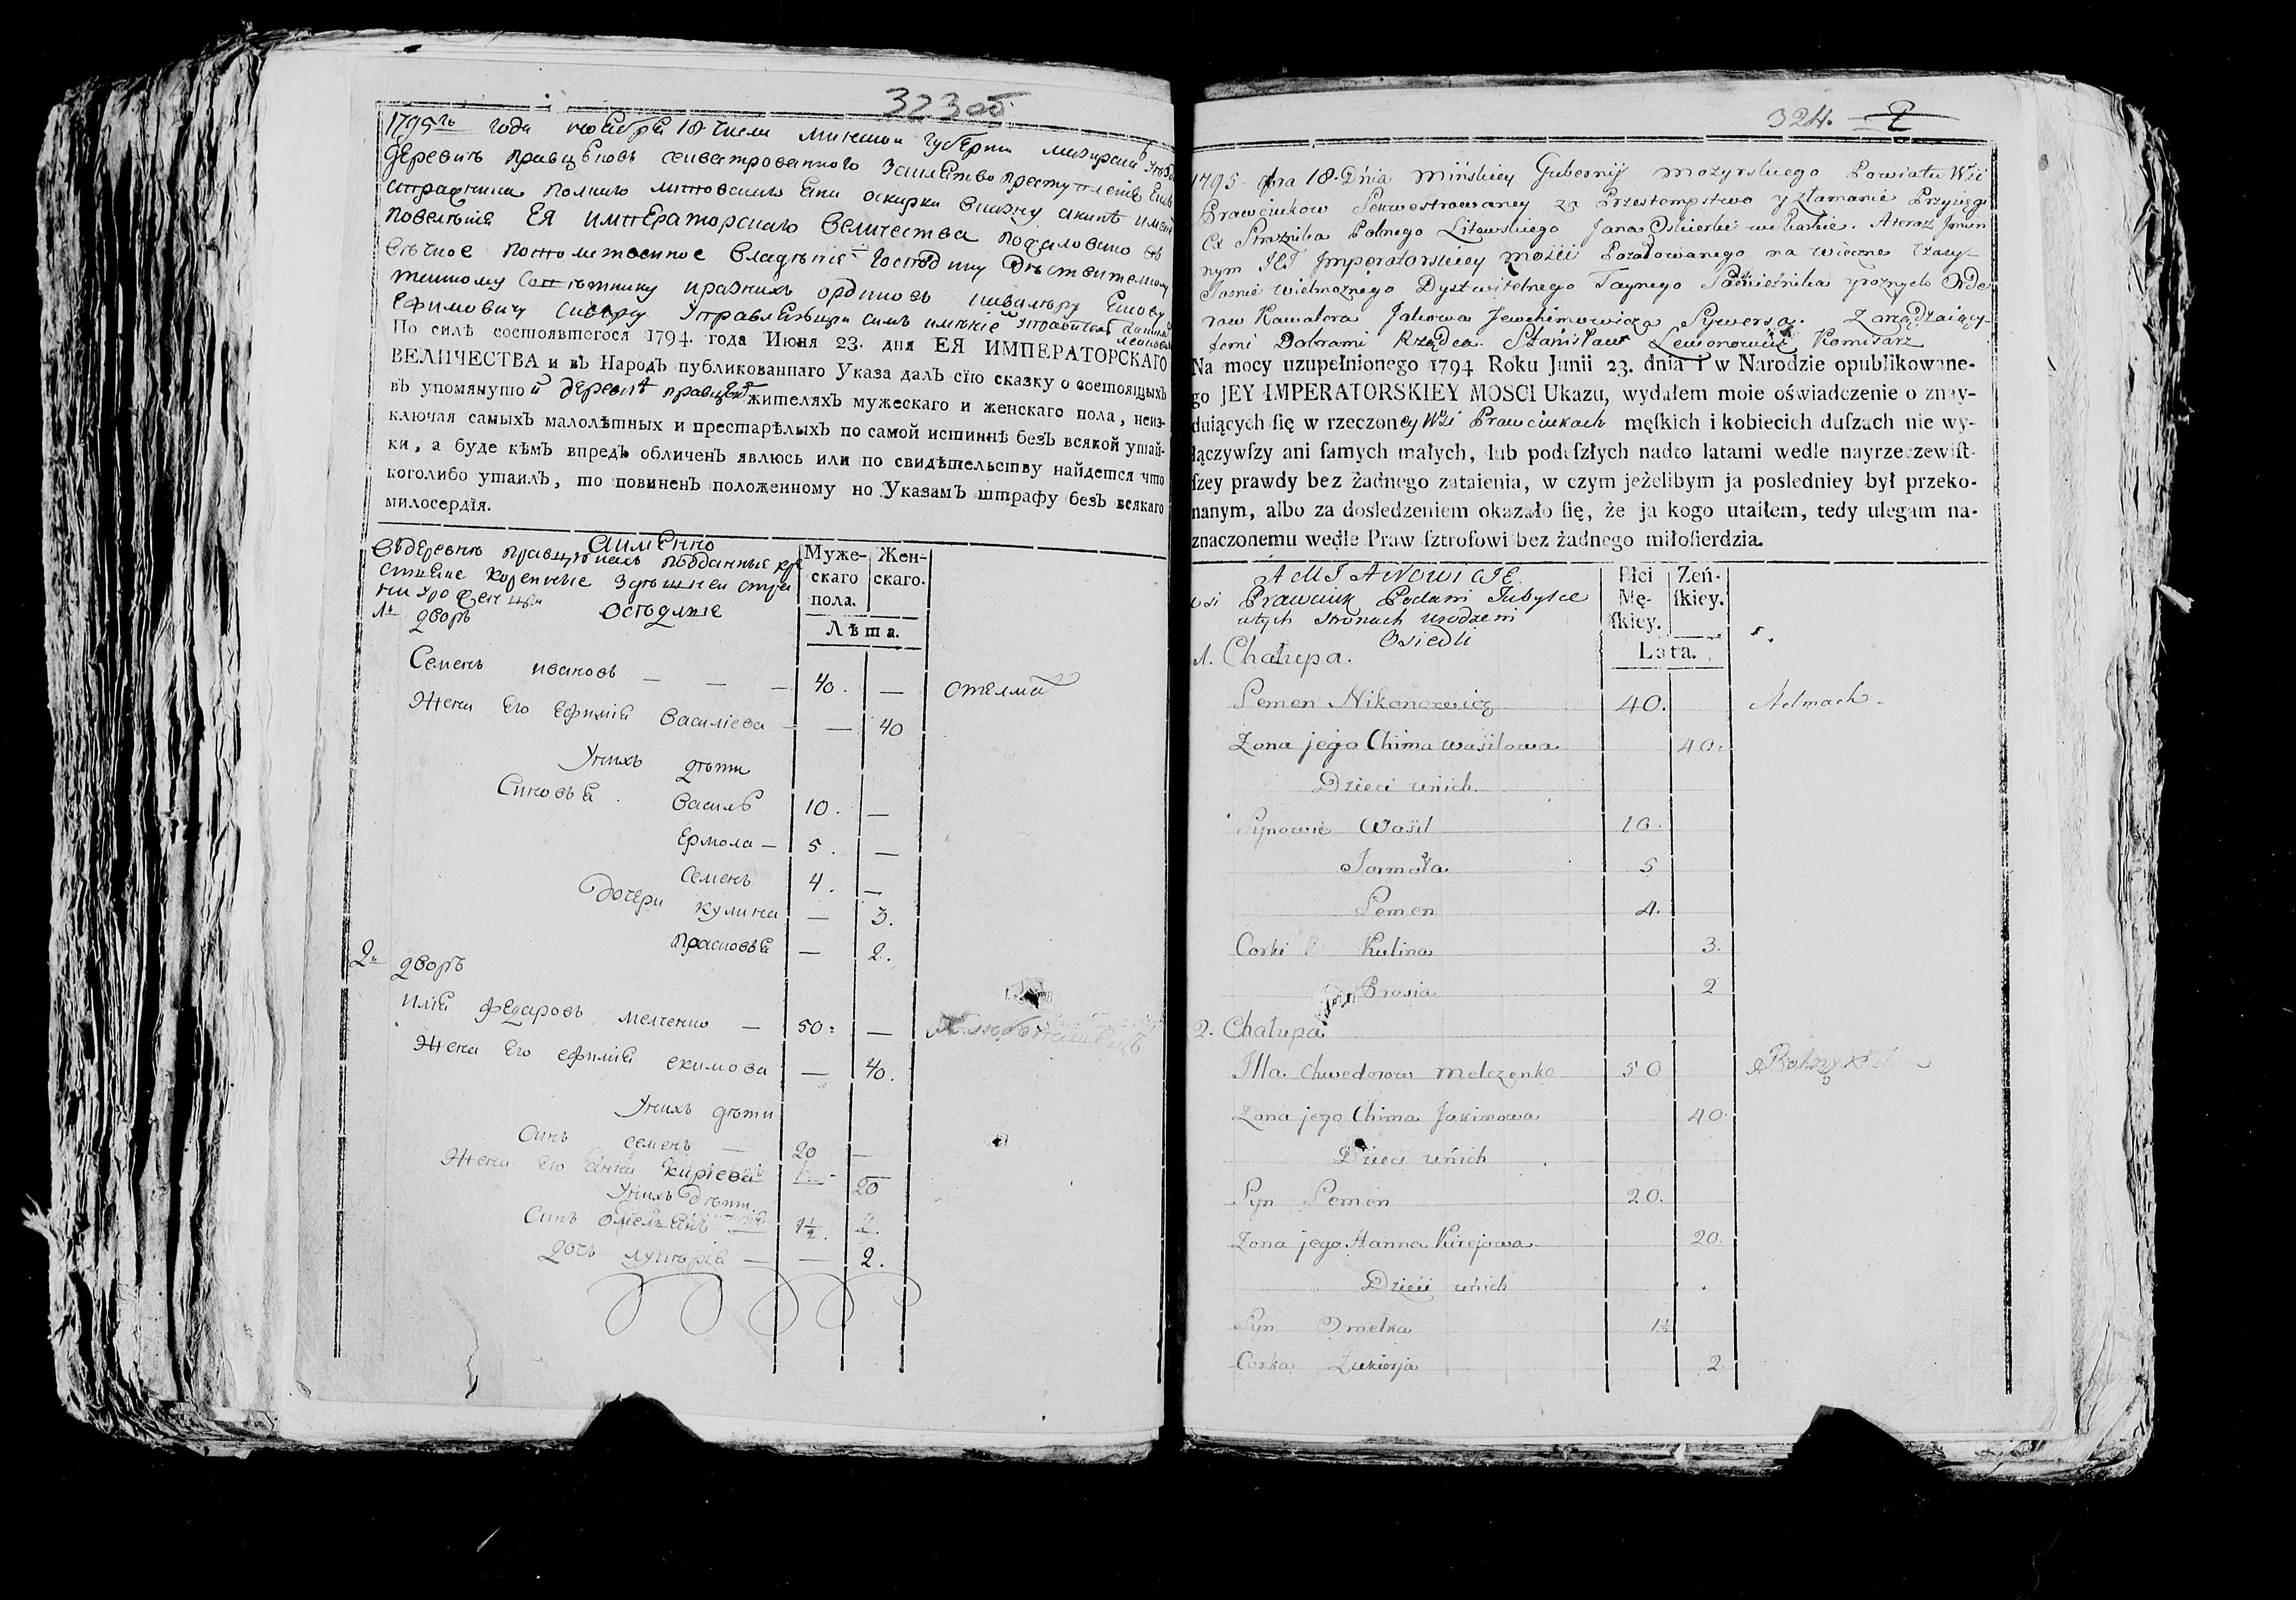 323 об
1795го года ноября 18 числа минской губернии мозырскаго
деревни правцуковъ секвестрованнаго
стражника полнаго литовскаго Яна оскирки
повеления ЕЯ императорскаго величества пожаловано въ
вѣчное потомственное владѣние господину дѣствителному
тайному совѣтнику и разныхъ ординовъ кавалеру Якову
Ефимовичу Сиверсу управляющи симъ имѣние
По силѣ состоявшегося 1794. года Июня 23. дня ЕЯ ИМПЕРАТОРСКАГО
ВЕЛИЧЕСТВА и въ Народъ публикованнаго Указа далъ сїю сказку о состоящыхъ
въ упомянутой деревнѣ жителяхъ мужескаго и женскаго пола, неиз-
ключая самыхъ малолѣтных и престарѣлыхъ по самой истиннѣ безъ всякой утай-
ки, а буде кѣмъ впредь обличенъ явлюсь или по свидѣтельству найдется что
коголибо утаилъ, то повиненъ положенному по Указамъ штрафу безъ всякаго
милосердїя.
аименно
Муже-
скаго
пола.
Жен-
скаго.
Лѣта.
Въ деревнѣ подданные
коренные здѣшней
уроженцы
оседлие
1й дворъ
Семенъ ивановъ — — — 40. —
Жена Его Ефимия Василиева — — 40
У нихъ дѣти
Синовья Василь 10. —
Ермола — 5. —
Семенъ 4. —
Дочери кулина — 3.
прасковья — 2.
2й дворъ
илия федаровъ мелченко — 50: —
Жена Его ефимия екимова — 40.
У нихъ дѣти
Синъ семенъ — 20 —
Жена Его киріева 20
У нихъ дѣти
Синъ 1½.
дочь лукерія — — 2.
324. 2
1795 9bra 18. Dnia Mińskiey Gubernij mozyrskiego Powiatu Wsi
Prawciukow Sekwestrowaney za Przestempstwo y złamanie Przysięgi
Ex Strażnika Polnego Litewskiego Jana Oskierki w skarbie. A teraz Jmien
nym JEJ Jmperatorskiey mości Pozałowanego na wieczne Czasy
Jasnie wielmoznego Dystwitelnego Taynego Sowietnika y roznych Orde
row Kawalora Jakowa Jewchimowicza Sywersa. Zarządzaiący
temi Dobrami Rządca. Stanisław Lewonowicz Komisarz
Na mocy uzupełnionego 1794 Roku Junii 23. dnia i w Narodzie opublikowane-
go JEY IMPERATORSKIEY MOSCI Ukazu, wydałem moie oświadczenie o znay-
duiących ſię w rzeczoney Wsi Prawciukach męſkich i kobiecich duſzach nie wy-
łączywſzy ani ſamych małych, lub podeſzłych nadto latami wedle nayrzeczewiſt-
ſzey prawdy bez żadnego zataienia, w czym jeżelibym ja posledniey był przeko-
nanym, albo za dosledzeniem okazało ſię, że ja kogo utaiłem, tedy ulegam na-
znaczonemu wedle Praw ſztrofowi bez żadnego miłoſierdzia.
A MIANOWICIE
Płci
Mę-
ſkiey.
Żeń-
ſkiey.
Lata.
wsi Prawciuk Podani Tubylce
w tych stronach urodzeni
Osiedli
1. Chałupa.
Semen Nikonowicz 40. Stelmach
Zona jego Chima Wasilowa 40.
Dzieci u nich
Synowie Wasil 10.
Jarmoła 5
Semen 4.
Corki Kulina 3.
Prosia 2
2. Chałupa
Illa. Chwedorow Melczenko 50
Zona jego Chima Jakimowa 40.
Dzieci u nich
Syn Semen 20.
Zona jego Hanna Kirejowa 20.
Dzieci u nich
Syn Omelka 1½
Corka Łukierja 2